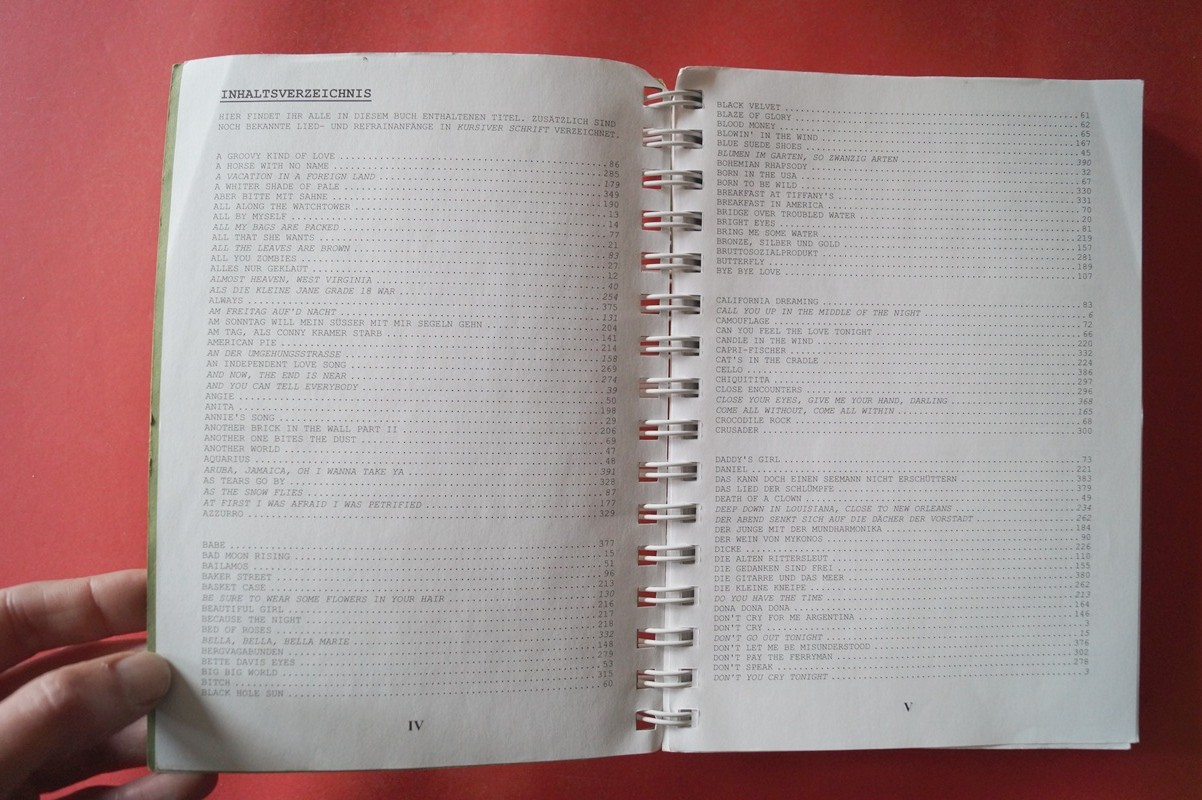 INHALTSVERZEICHNIS
HIER FINDET IHR ALLE IN DIESEM BUCH ENTHALTENEN TITEL. ZUSÄTZLICH SIND
NOCH BEKANNTE LIED- UND REFRAINANFÄNGE IN KURSIVER SCHRIFT VERZEICHNET.
A GROOVY KIND OF LOVE ... 86
A HORSE WITH NO NAME ... 285
A VACATION IN A FOREIGN LAND ... 179
A WHITER SHADE OF PALE ... 349
ABER BITTE MIT SAHNE ... 190
ALL ALONG THE WATCHTOWER ... 13
ALL BY MYSELF ... 14
ALL MY BAGS ARE PACKED ... 77
ALL THAT SHE WANTS ... 21
ALL THE LEAVES ARE BROWN ... 83
ALL YOU ZOMBIES ... 27
ALLES NUR GEKLAUT ... 12
ALMOST HEAVEN, WEST VIRGINIA ... 40
ALS DIE KLEINE JANE GRADE 18 WAR ... 254
ALWAYS ... 375
AM FREITAG AUF'D NACHT ... 131
AM SONNTAG WILL MEIN SÜSSER MIT MIR SEGELN GEHN ... 204
AM TAG, ALS CONNY KRAMER STARB ... 141
AMERICAN PIE ... 214
AN DER UMGEHUNGSSTRASSE ... 158
AN INDEPENDENT LOVE SONG ... 269
AND NOW, THE END IS NEAR ... 274
AND YOU CAN TELL EVERYBODY ... 39
ANGIE ... 50
ANITA ... 198
ANNIE'S SONG ... 29
ANOTHER BRICK IN THE WALL PART II ... 206
ANOTHER ONE BITES THE DUST ... 69
ANOTHER WORLD ... 47
AQUARIUS ... 48
ARUBA, JAMAICA, OH I WANNA TAKE YA ... 391
AS TEARS GO BY ... 328
AS THE SNOW FLIES ... 87
AT FIRST I WAS AFRAID I WAS PETRIFIED ... 177
AZZURRO ... 329
BABE ... 377
BAD MOON RISING ... 15
BAILAMOS ... 51
BAKER STREET ... 96
BASKET CASE ... 213
BE SURE TO WEAR SOME FLOWERS IN YOUR HAIR ... 130
BEAUTIFUL GIRL ... 216
BECAUSE THE NIGHT ... 217
BED OF ROSES ... 218
BELLA, BELLA, BELLA MARIE ... 332
BERGVAGABUNDEN ... 148
BETTE DAVIS EYES ... 278
BIG BIG WORLD ... 53
BITCH ... 315
BLACK HOLE SUN ... 60
IV
BLACK VELVET ... 61
BLAZE OF GLORY ... 62
BLOOD MONEY ... 65
BLOWIN' IN THE WIND ... 167
BLUE SUEDE SHOES ... 45
BLUMEN IM GARTEN, SO ZWANZIG ARTEN ... 390
BOHEMIAN RHAPSODY ... 32
BORN IN THE USA ... 67
BORN TO BE WILD ... 330
BREAKFAST AT TIFFANY'S ... 331
BREAKFAST IN AMERICA ... 70
BRIDGE OVER TROUBLED WATER ... 20
BRIGHT EYES ... 81
BRING ME SOME WATER ... 219
BRONZE, SILBER UND GOLD ... 157
BRUTTOSOZIALPRODUKT ... 281
BUTTERFLY ... 189
BYE BYE LOVE ... 107
CALIFORNIA DREAMING ... 83
CALL YOU UP IN THE MIDDLE OF THE NIGHT ... 6
CAMOUFLAGE ... 72
CAN YOU FEEL THE LOVE TONIGHT ... 66
CANDLE IN THE WIND ... 220
CAPRI-FISCHER ... 332
CAT'S IN THE CRADLE ... 224
CELLO ... 386
CHIQUITITA ... 297
CLOSE ENCOUNTERS ... 296
CLOSE YOUR EYES, GIVE ME YOUR HAND, DARLING ... 368
COME ALL WITHOUT, COME ALL WITHIN ... 165
CROCODILE ROCK ... 68
CRUSADER ... 300
DADDY'S GIRL ... 73
DANIEL ... 221
DAS KANN DOCH EINEN SEEMANN NICHT ERSCHÜTTERN ... 383
DAS LIED DER SCHLÜMPFE ... 379
DEATH OF A CLOWN ... 49
DEEP DOWN IN LOUISIANA, CLOSE TO NEW ORLEANS ... 234
DER ABEND SENKT SICH AUF DIE DÄCHER DER VORSTADT ... 262
DER JUNGE MIT DER MUNDHARMONIKA ... 184
DER WEIN VON MYKONOS ... 90
DICKE ... 226
DIE ALTEN RITTERSLEUT ... 110
DIE GEDANKEN SIND FREI ... 155
DIE GITARRE UND DAS MEER ... 380
DIE KLEINE KNEIPE ... 262
DO YOU HAVE THE TIME ... 213
DONA DONA DONA ... 164
DON'T CRY FOR ME ARGENTINA ... 146
DON'T CRY ... 3
DON'T GO OUT TONIGHT ... 15
DON'T LET ME BE MISUNDERSTOOD ... 376
DON'T PAY THE FERRYMAN ... 302
DON'T SPEAK ... 278
DON'T YOU CRY TONIGHT ... 3
V